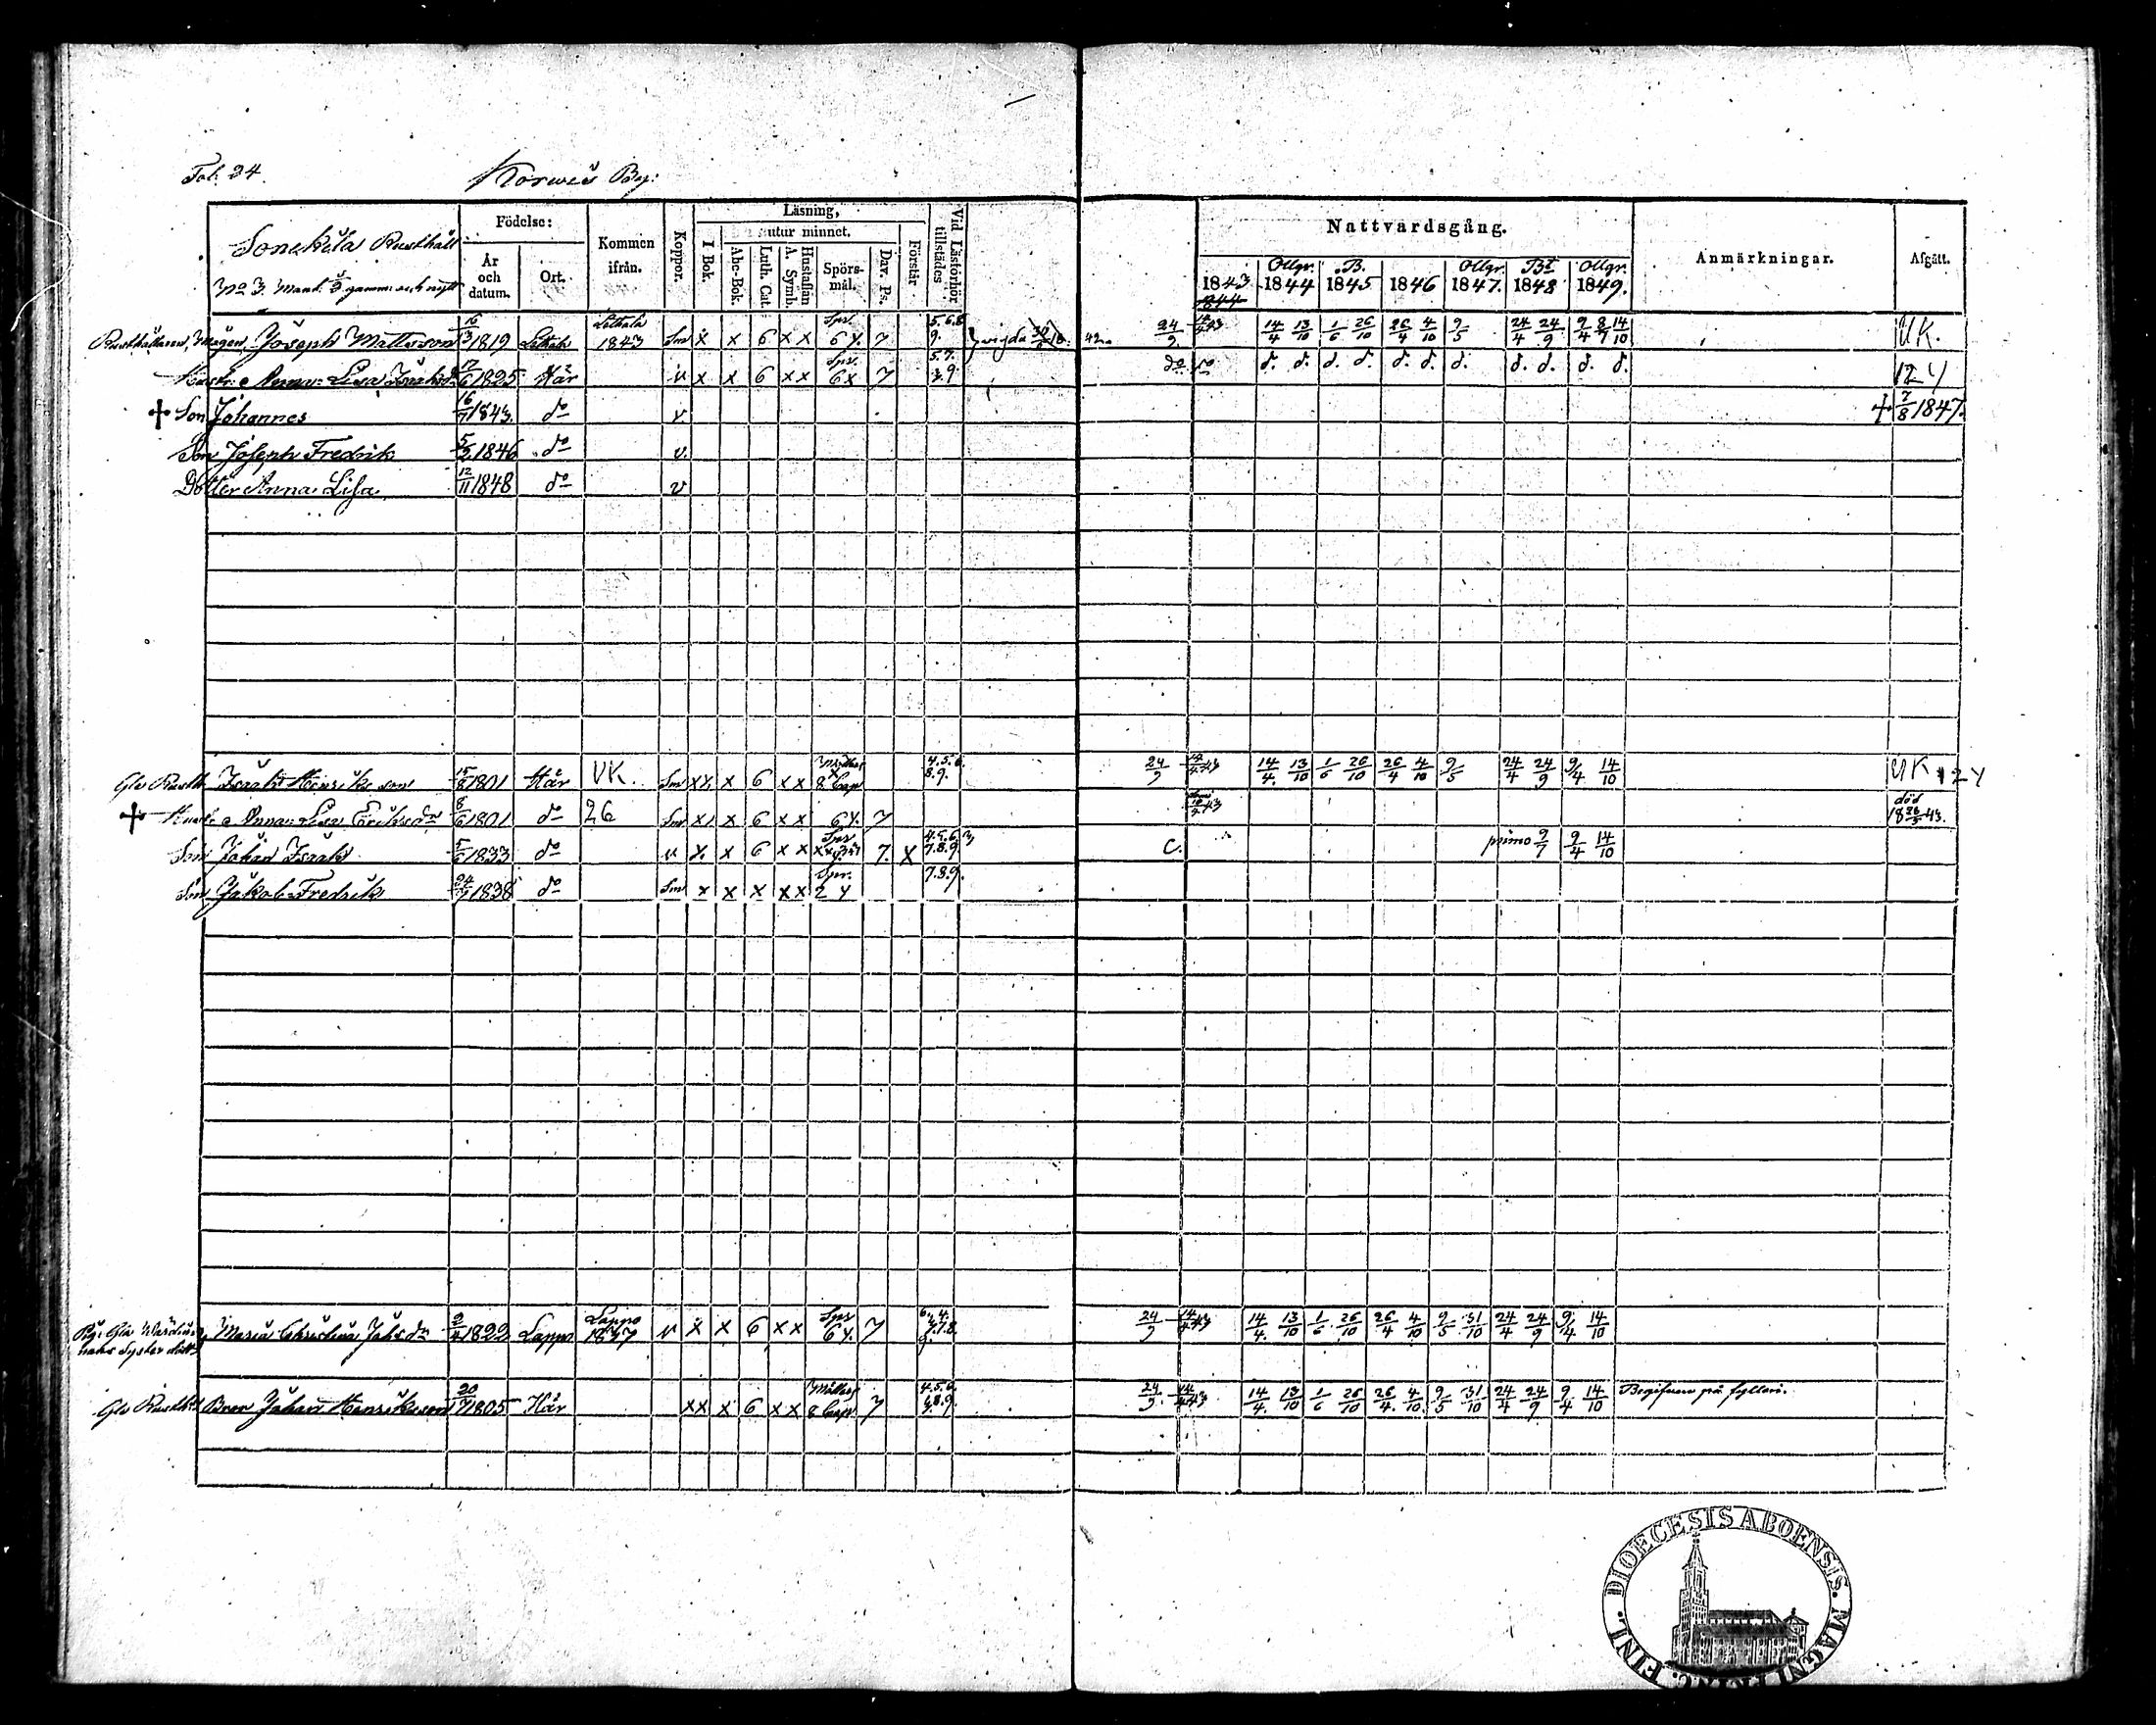 Fol: 24.
Korwes By:
Sonekila Rusthåll
No 3. Mant. gamm: och nytt
Födelse:
År och datum.
Ort.
Kommen ifrån.
Koppor.
Läsning,
utur minnet.
I Bok.
Abc-Bok.
Luth. Cat.
A. Symb.
Hustaflan
Spörsmål.
Dav. Ps.
Förstår
Vid Läsförhör tillstädes
Nattvardsgång.
1843 1844 1845 1846 1847. 1848 1849.
Anmärkningar.
Afgått.
Rusthållaren, Mågen, Joseph Mattsson 16/3 1819 Letala Letala 1843 Sm x x 6 x x Spr. 6 y. 7 5.6.8 9. vigda 24/9 14/4 43 14/4 13/10 1/6 26/10 26/4 4/10 9/5 24/4 24/9 9/4 8/7 14/10 UK.
Hustr: Anna Lisa Isaksdr 17/6 1825 Här v x x 6 x x Spr. 6 x 7 5.7. 9. do do d. d. d. d. d. d. d. d. d. d. d. 12 y
+ Son Johannes 16/7 1843. do v. + 7/8 1847.
Son Joseph Fredrik 5/2 1846 do v.
Dotter Anna Lisa 12/11 1848 do v
Gle Rusth. Isaak Henriksson 15/8 1801 Här UK. Sm x x x 6 x x 8 Cap 4.5.6. 8.9. 24/9 14/4 43 14/4. 13/10 1/6 26/10 26/4 4/10 9/5 24/4 24/9 9/4 14/10 UK 12 y
+ Hustr: Anna Lisa Eriksdr 8/6 1801 do 26 Sm x x 6 x x 6 y. 7 död 18 26/3 43.
Son Johan Isaak 5/6 1833 do v x. x 6 x x Spr 7. x 4.5.6. 7.8.9 C. primo 9/7 9/4 14/10
Son Jakob Fredrik 24/7 1838 do Sm x x x x x Spr. 2 y 7.8.9.
Pig: Maria Christina Johsdr 2/4 1822 Lappo Lappo 1837 v x x 6 x x Spr 6 y. 7 24/9 14/4 43 14/4. 13/10 1/6 26/10 26/4 4/10 9/5 31/10 24/4 24/9 9/4 14/10
hans Syster dott:
Gle Rusth: Bror Johan Henriksson 20/7 1805 Här x x x 6 x x 8 Cap 7 4.5.6. 8.9. 24/9. 14/4 43 14/4. 13/10 1/6 26/10 26/4. 4/10. 9/5 31/10 24/4 24/9 9/4 14/10 Begifven på fylleri.
DIOECESIS ABOENSIS. MAGNI
FINL.